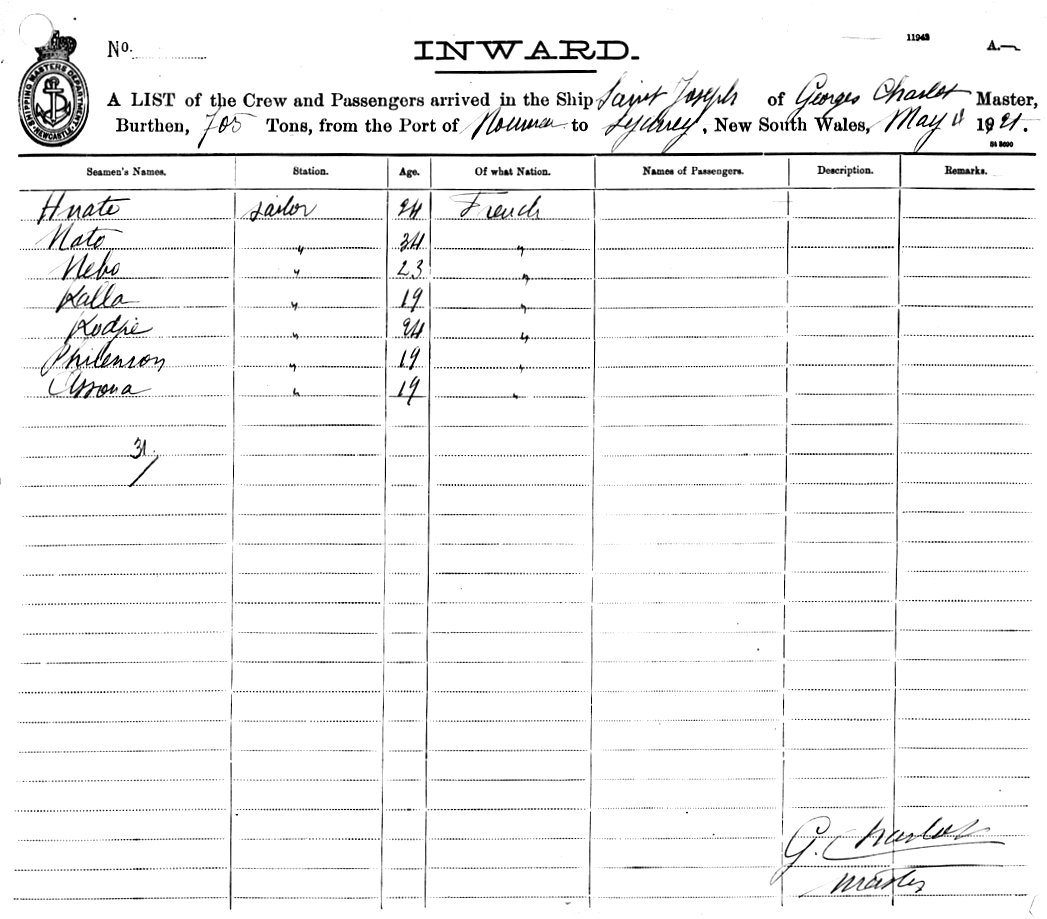 No.
INWARD.
11943
A.—
SHIPPING MASTERS DEPARTMENT
NEWCASTLE
A LIST of the Crew and Passengers arrived in the Ship Saint Joseph of Georges Charlot Master,
Burthen, 705 Tons, from the Port of Noumea to Sydney, New South Wales, May 1921.
Seamen's Names. Station. Age. Of what Nation. Names of Passengers. Description. Remarks.
Hnate sailor 24 French
Nato " 34 "
Nebo " 23 "
Kalla " 19 "
Kodjie " 24 "
Philemon " 19 "
Assona " 19 "
31.
G. Charlot
Master